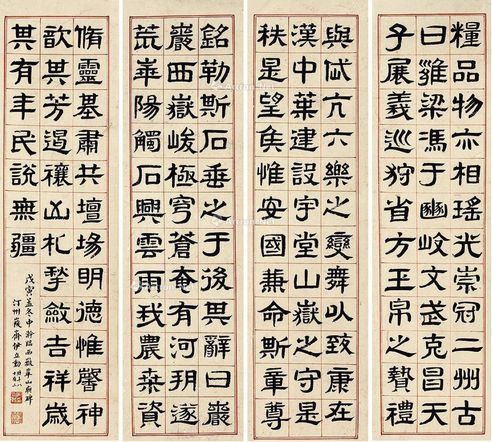 糧品物亦相瑤光崇冠二州古
曰雍梁馮于豳岐文武克昌天
子展義巡狩省方玉帛之贄禮
與岱亢六樂之變舞以致康在
漢中葉建設宇堂山嶽之守是
秩是望侯惟安國兼命斯章尊
銘勒斯石垂之于後其辭曰巖
巖西嶽峻極穹蒼奄有河朔遂
荒華陽觸石興雲雨我農桑資
脩靈基肅共壇場明德惟馨神
歆其芳遏禳凶札揫斂吉祥歲
其有年民說無疆
戊寅孟冬中澣臨西嶽華山廟碑
汀州峻齋伊立勳